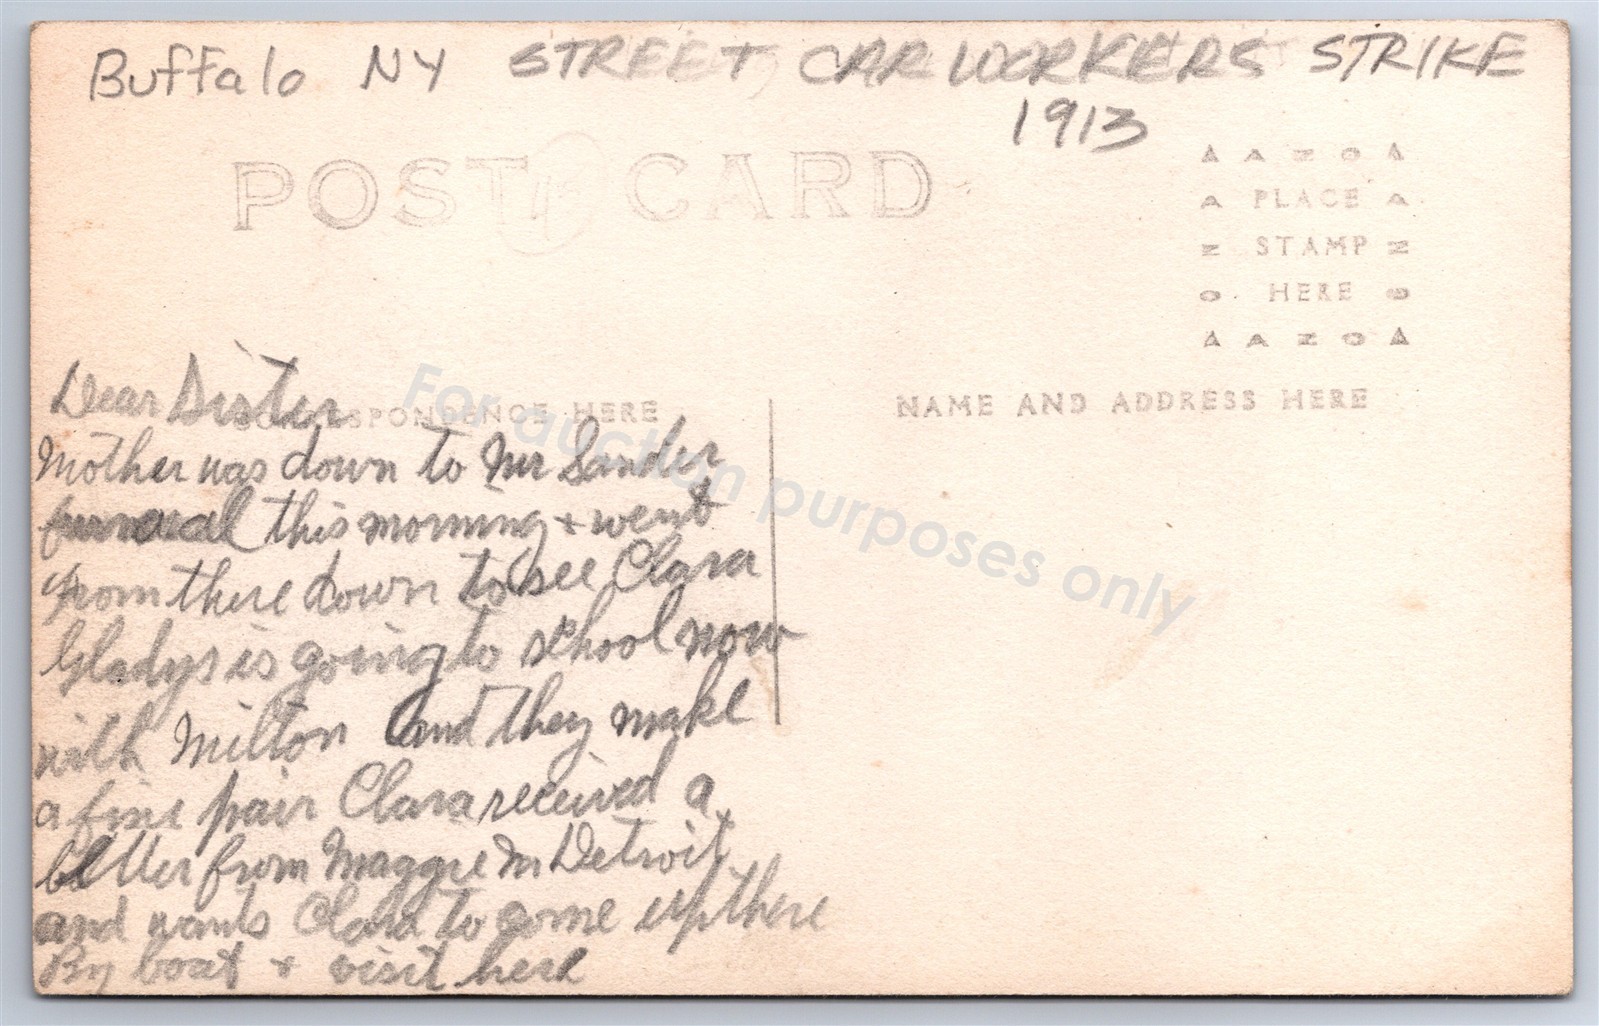 Buffalo NY STREET CAR WORKERS STRIKE
1913
POST CARD
AZO
PLACE
STAMP
HERE
AZO
Dear Sister
CORRESPONDENCE HERE
NAME AND ADDRESS HERE
Mother was down to Mr Sander
funeral this morning + went
from there down to see Clara
Gladys is going to school now
with Milton and they make
a fine pair Clara received a
letter from Maggie in Detroit
and wants Clara to come up there
By boat + visit here
For auction purposes only